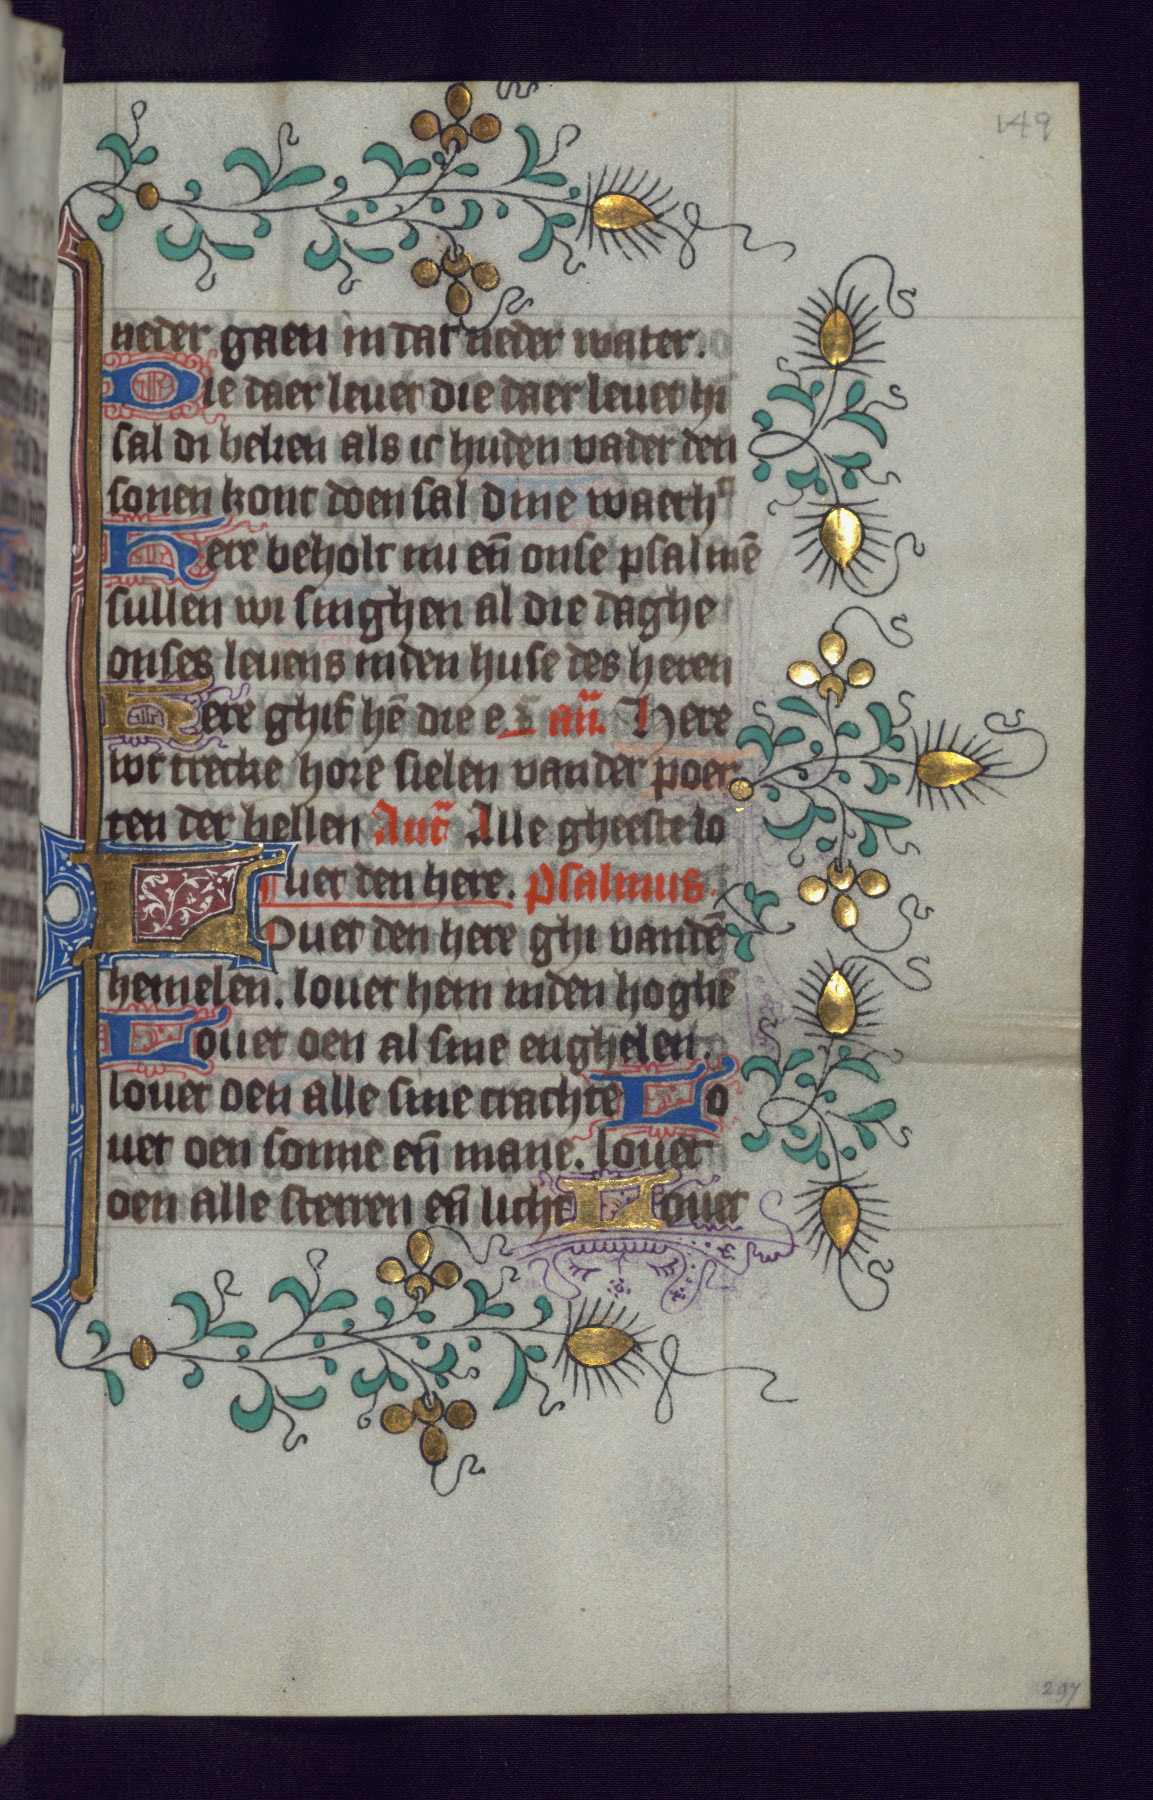 149
neder gaen in dat neder water.
Die daer leuet die daer leuet hi
sal di belien als ic huden vader den
sonen kont doen sal dine waerh
Here beholt mi en̄ onse psalmē
sullen wi singhen al die daghe
onses leuens inden huse des heren
Here ghif hē die e añ. Here
wt trecke hore sielen van der poer
ten der hellen Ant̄ Alle gheeste lo
uet den here. psalmus.
Louet den here ghi vandē
hemelen. louet hem inden hoghē
Louet oen al sine enghelen.
louet oen alle sine crachte Lo
uet oen sonne en̄ mane. louet
oen alle sterren en̄ licht Louet
297